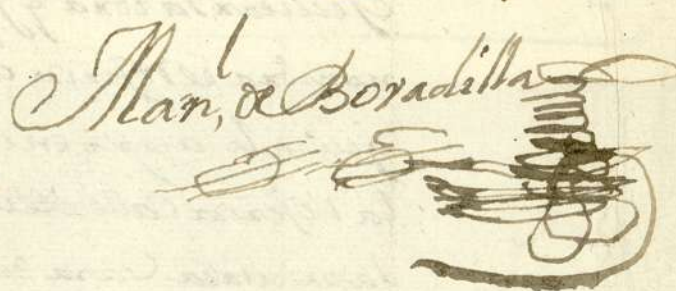 Man,l de Boradilla